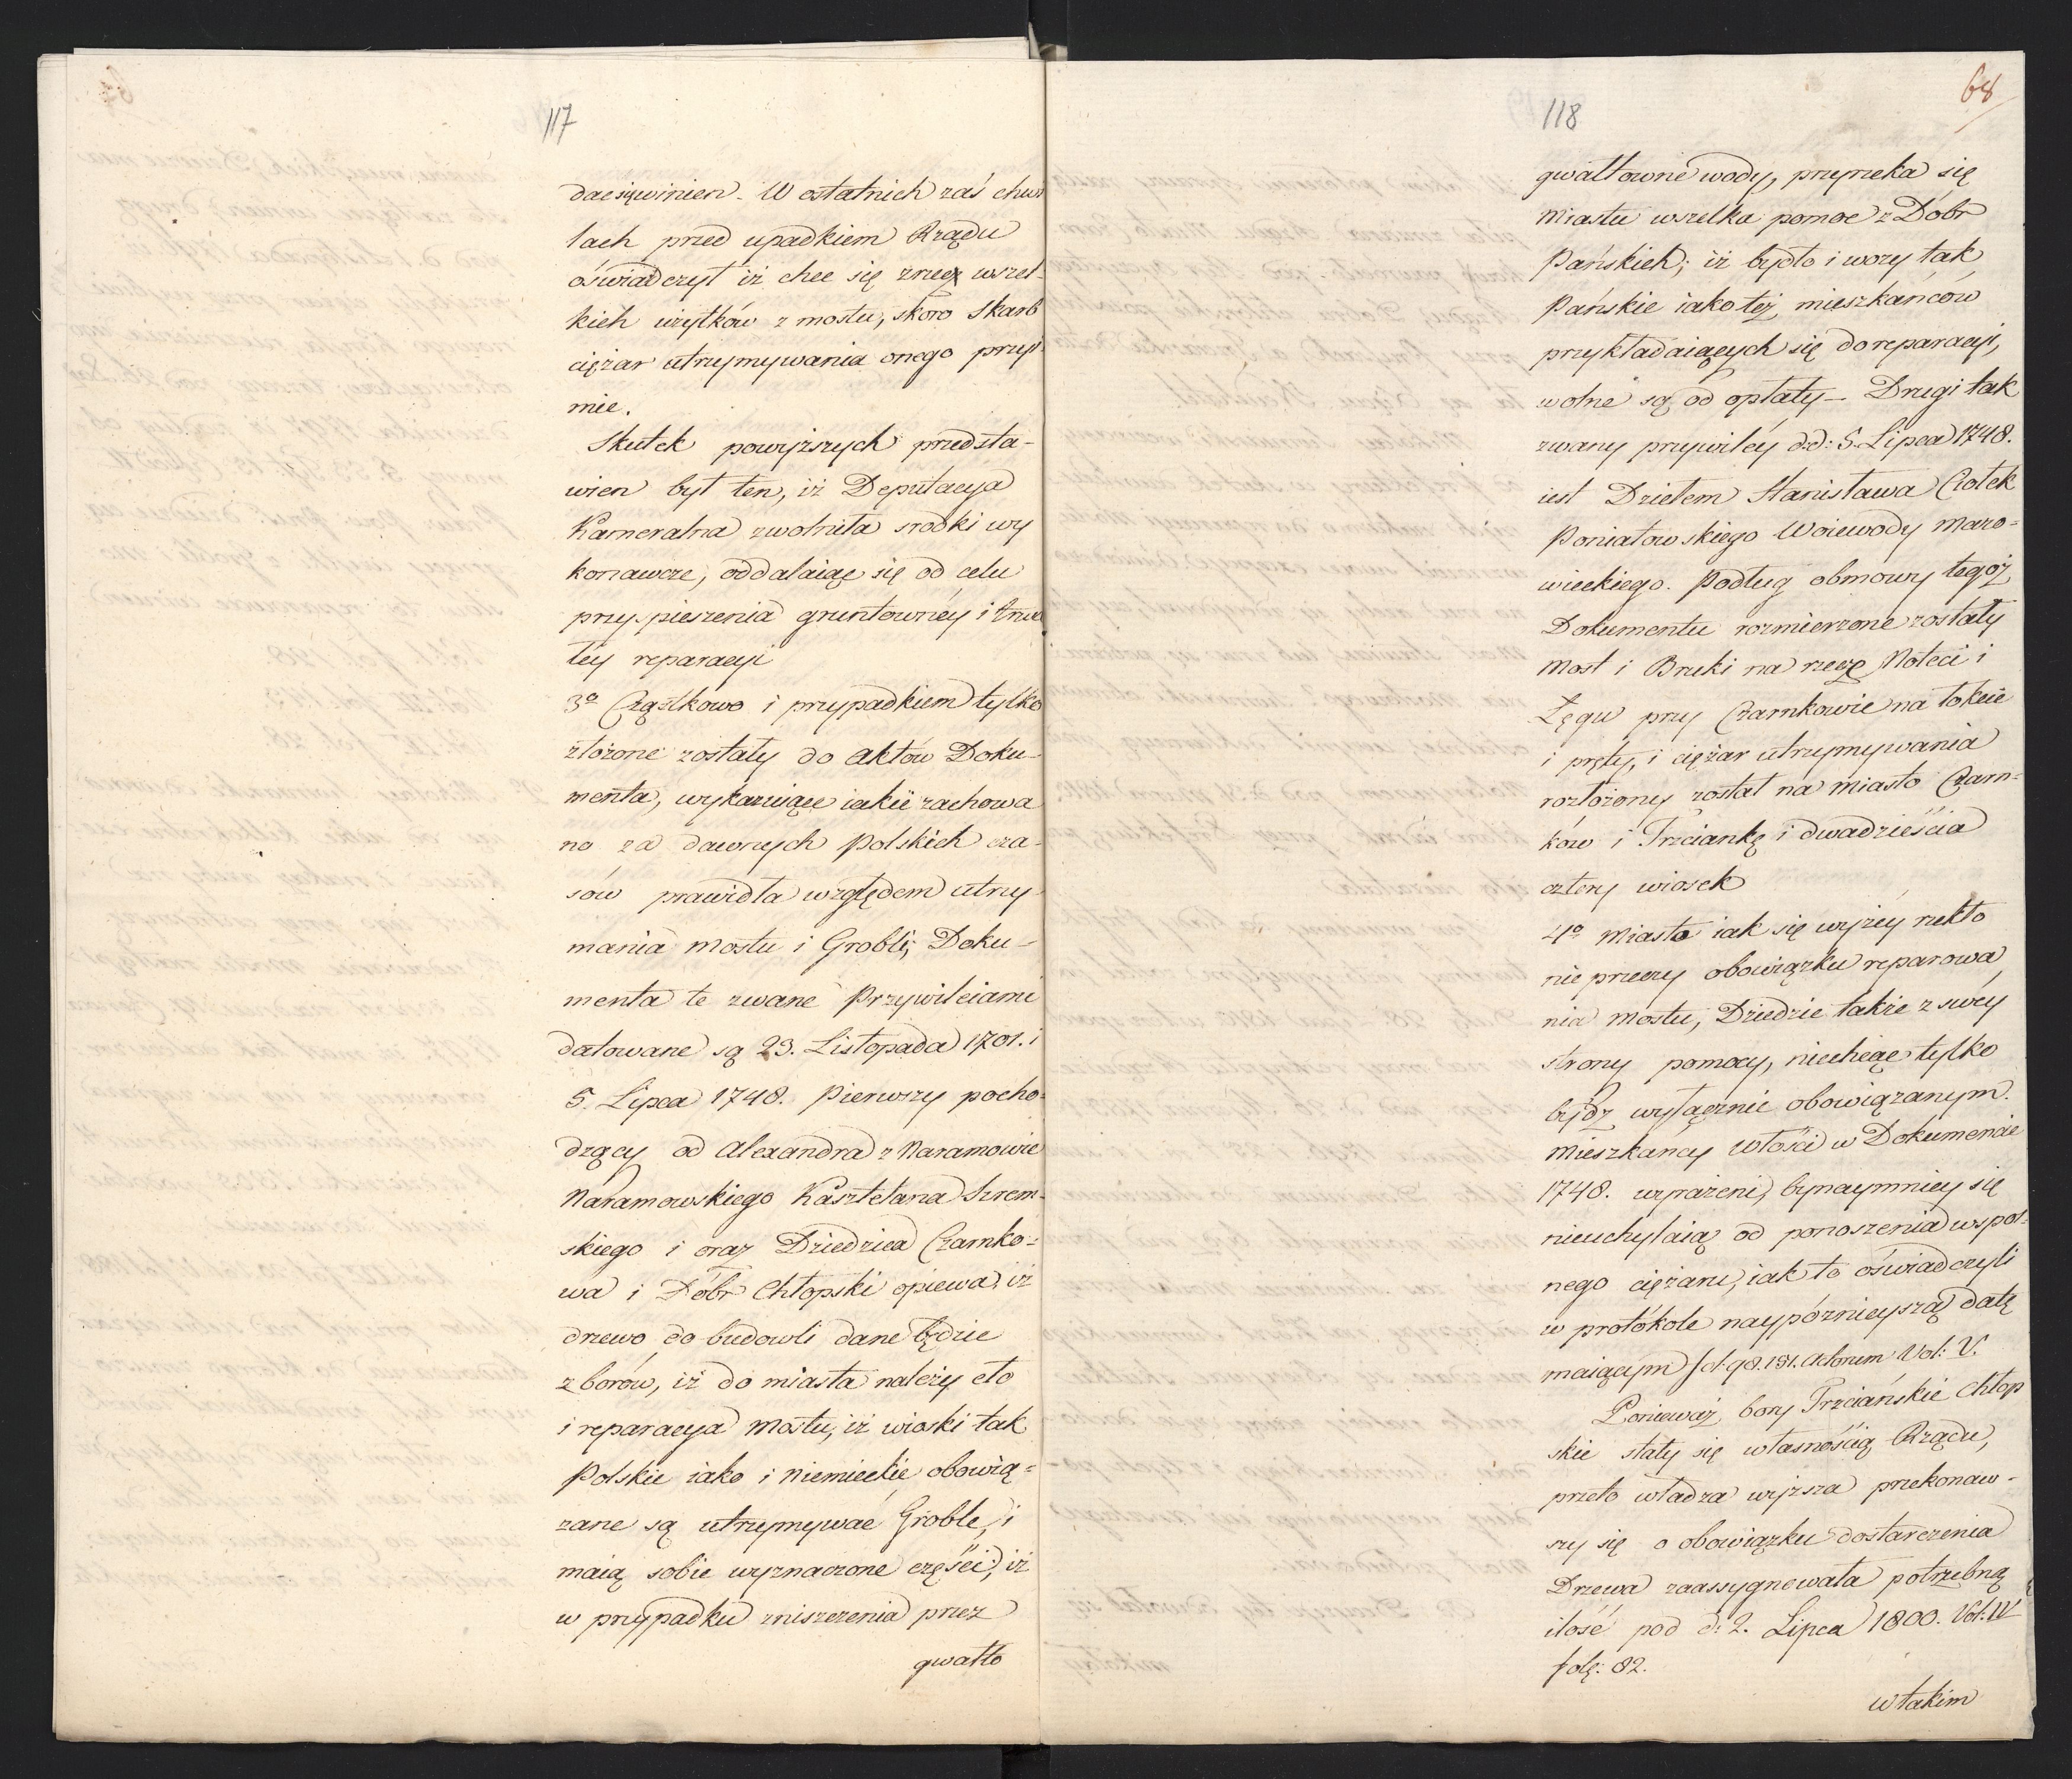 117
dać się winien. W ostatnich zaś chwi
lach przed upadkiem Rządu
oświadczył iż chce się zrzec wszel-
kich użytków z mostu, skoro Skarb
ciężar utrzymywania onego przyi-
mie.
Skutek powyższych przedsta-
wien był ten, iż Deputacya
Kameralna zwolniła srodki wy
konawcze, oddalaiąc się od celu
przyspieszenia gruntownéy i trwa
łéy reparacyi
3º Cząstkowo i przypadkiem tylko
złożone zostały do Aktów Doku-
menta, wykazuiące iakie zachowa
no za dawnych Polskich cza-
sów prawidła względem utrzy-
mania mostu i Grobli; Doku-
menta te zwane Przywileiami
datowane są 23. Listopada 1701. i
5. Lipca 1748. Pierwszy pocho-
dzący od Alexandra z Naramowic
Naramowskiego Kasztelana Szrem-
skiego i oraz Dziedzica Czarnko-
wa i Dóbr Chłopski opiewa, iż
drzewo do budowli dane będzie
z borów, iż do miasta należy cło
i reparacya mostu, iż wioski tak
Polskie iako i Niemieckie obowią-
zane są utrzymywać Groble, i
maią sobie wyznaczone części, iż
w przypadku zniszczenia przez
gwałto
68
118
gwałtowne wody, przyrzeka się
Miastu wszelka pomoc z Dóbr
Pańskich; iż bydło i wozy tak
Pańskie iako téż mieszkańców
przykładaiących się do reparacyi,
wolne są od opłaty – Drugi tak
zwany przywiléy d.d: 5. Lipca 1748.
iest Dziełem Stanisława Ciołek
Poniatowskiego Woiewody Mazo-
wieckiego. Podług obmowy tegoż
Dokumentu rozmierzone zostały
Most i Bruki na rzece Noteci i
Łęgu przy Czarnkowie na łokcie
i pręty, i ciężar utrzymywania
rozłożony został na miasto Czarn-
ków i Trzciankę i dwadzieścia
cztery wiosek
4º Miasto iak się wyżéy rzekło
nie przeczy obowiązku reparowa
nia mostu, Dziedzic także z swéy
strony pomocy, niechcąc tylko
bydź wyłącznie obowiązanym.
Mieszkańcy Włości w Dokumencie
1748. wyrażeni, bynaymniey się
nieuchylaią od ponoszenia wspol-
nego ciężaru, iak to oświadczyli
w protokole naypóźnieyszą datę
maiącym fol: 98. 151. Actorum Vol: V.
Ponieważ bory Trzciańskie Chłop
skie stały się własnością Rządu,
przeto władza wyższa przekonaw-
szy się o obowiązku dostarczenia
Drzewa zaassygnowała potrzebną
ilość pod d: 2. Lipca 1800. Vol: IV
folg: 82.
w takim